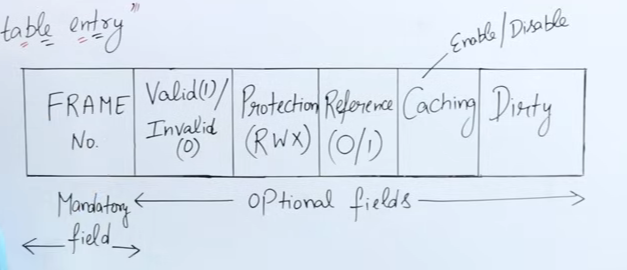 table entry"
Enable/Disable
FRAME No.
Valid(1)/ Invalid (0)
Protection (RWX)
Reference (0/1)
Caching
Dirty
Mandatory field
OPtional fields